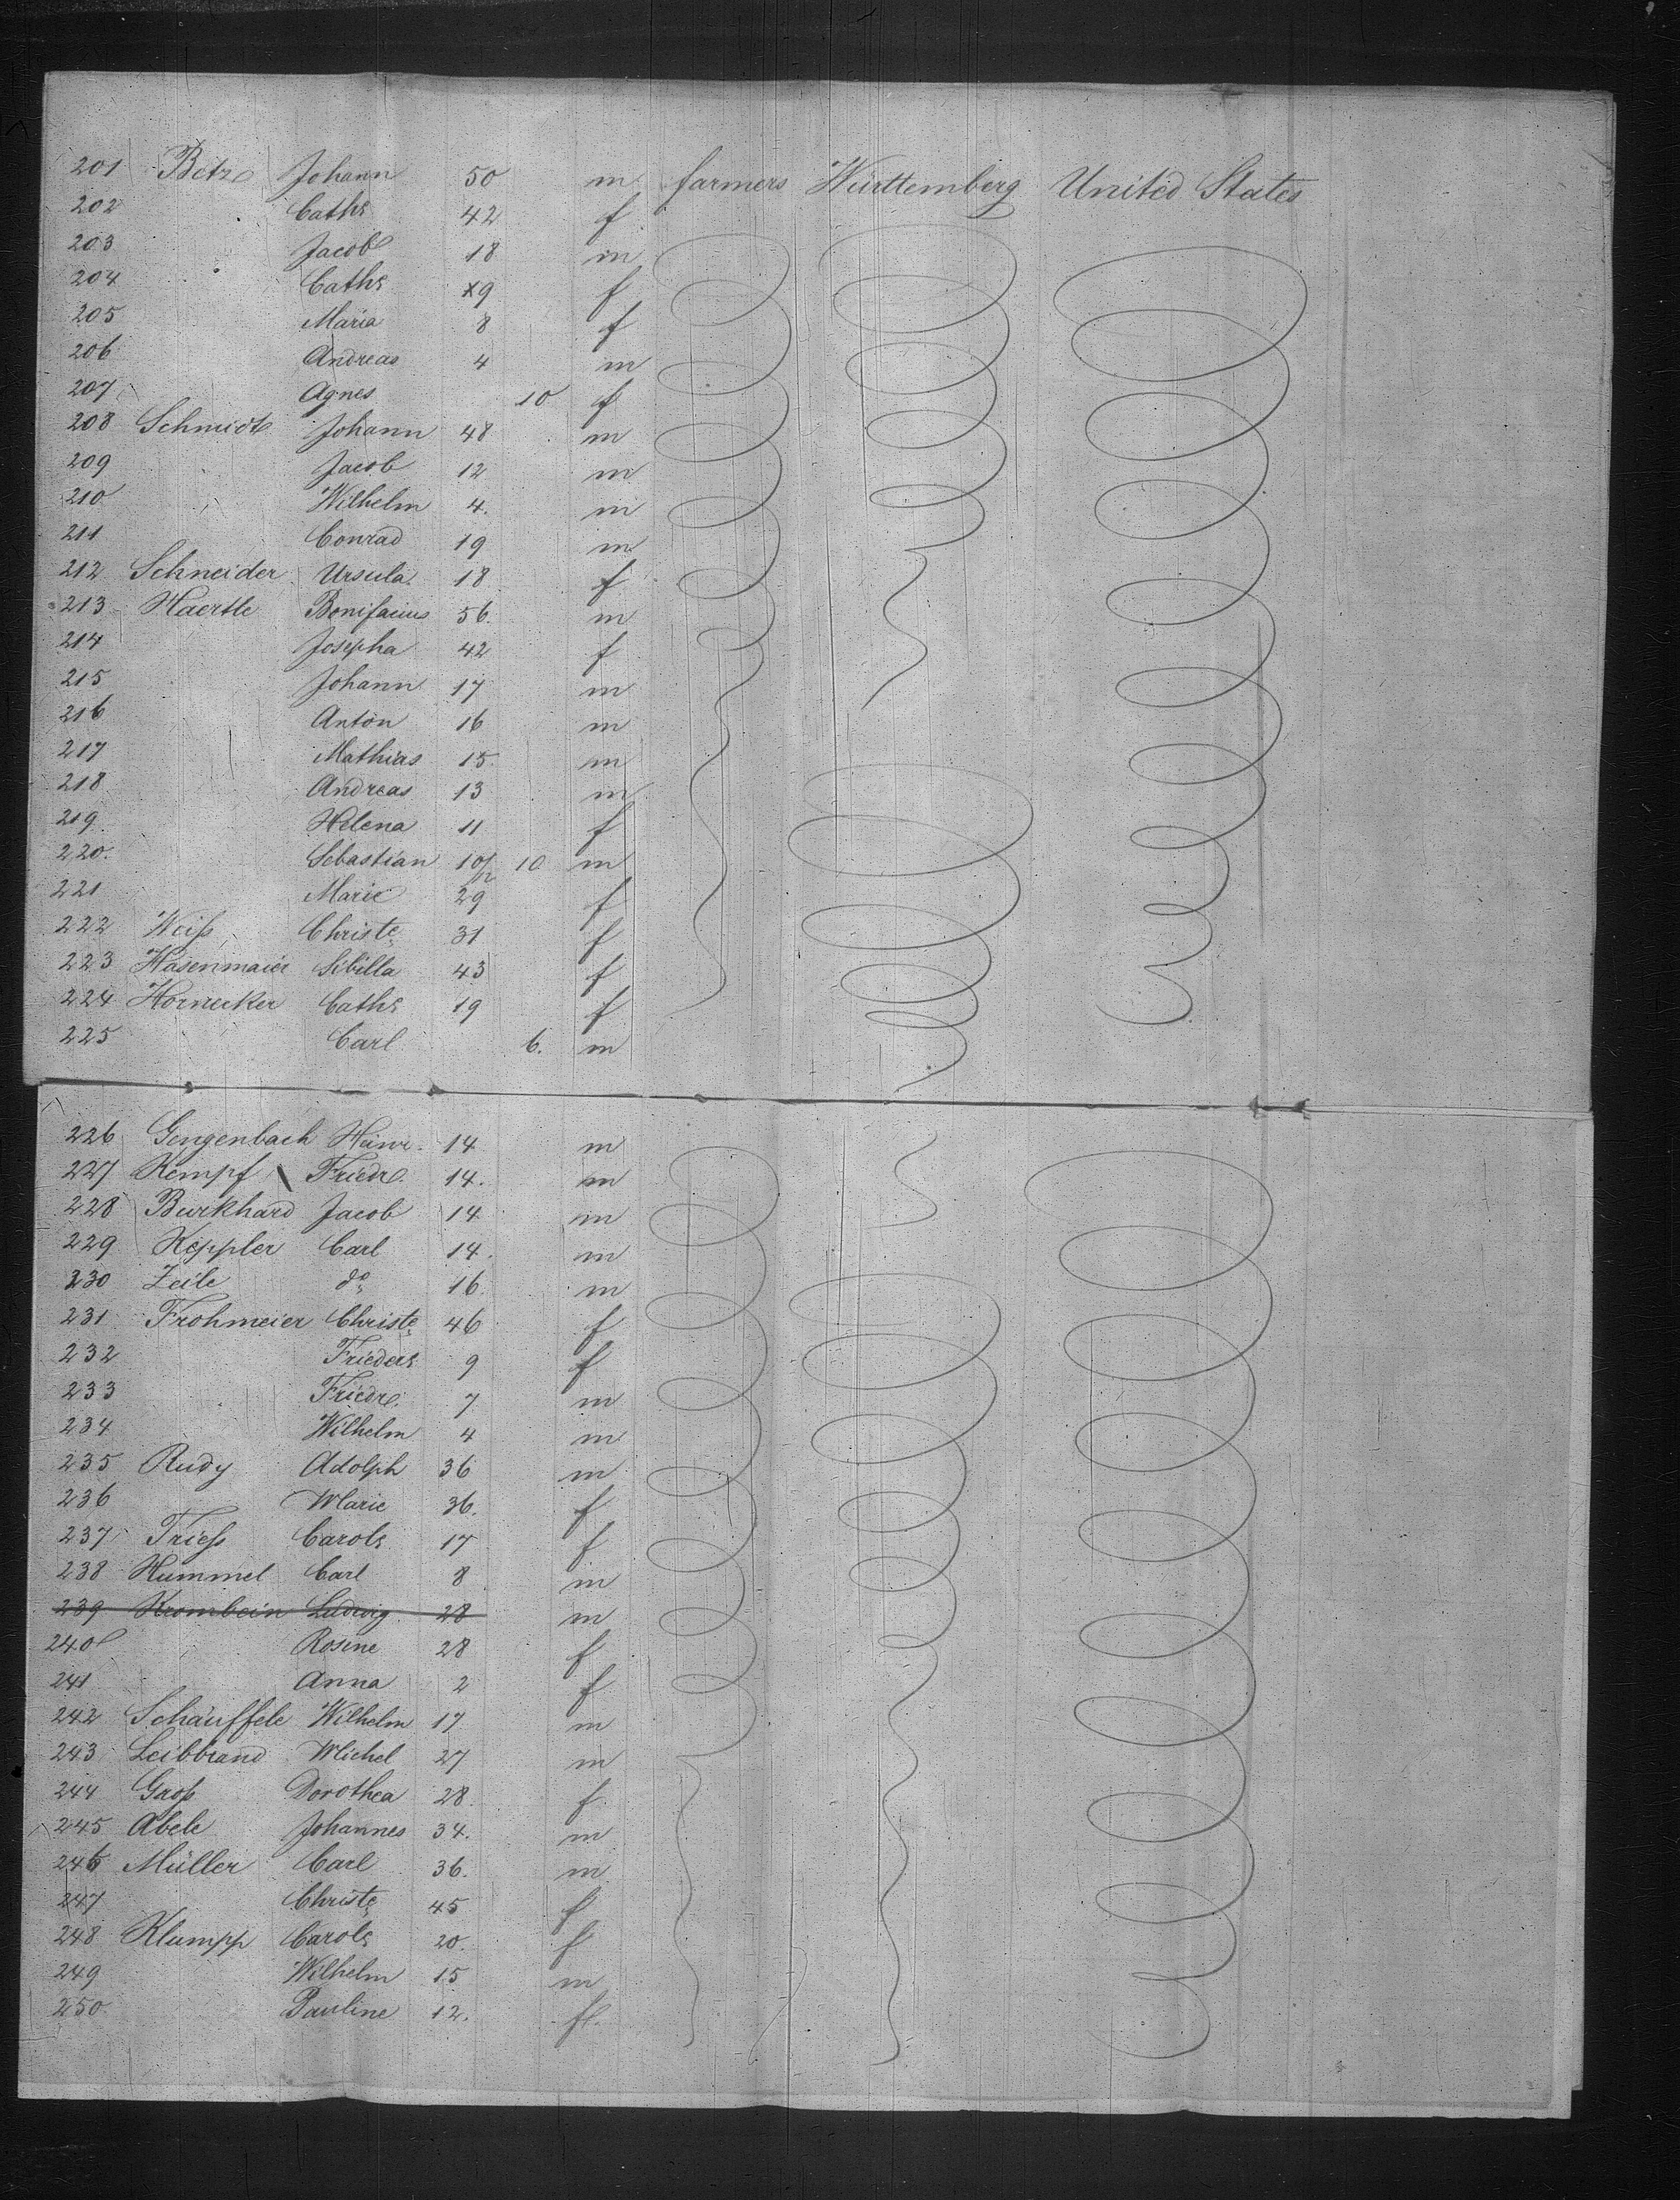 201 Betz Johann 50 m farmers Württemberg United States
202 Caths 42 f
203 Jacob 18 m
204 Caths 9 f
205 Maria 8 f
206 Andreas 4 m
207 Agnes 10 f
208 Schmidt Johann 48 m
209 Jacob 12 m
210 Wilhelm 4. m
211 Conrad 19 m
212 Schneider Ursula 18 f
213 Haertle Bonifacius 56. m
214 Josepha 42 f
215 Johann 17 m
216 Anton 16 m
217 Mathias 15. m
218 Andreas 13 m
219. Helena 11 f
220. Sebastian 10 m
221 Marie 29 f
222 Weiß Christe 31 f
223 Hasenmaier Sibilla 43 f
224 Hornecker Caths 19 f
225 Carl 6. m
226 Gengenbach Heinr. 14 m
227 Kempf Friedr. 14. m
228 Burkhard Jacob 14 m
229 Keppler Carl 14. m
230 Zeile do 16. m
231 Frohmeier Christe 46 f
232 Frieders 9 f
233 Friedr. 7 m
234 Wilhelm 4 m
235 Rudy Adolph 36 m
236 Marie 36. f
237 Trieß Carols 17 f
238 Hummel Carl 8 m
239 Krombein Ludwig 28 m
240 Rosine 28 f
241 Anna 2 f
242 Schäuffele Wilhelm 17 m
243 Leibbrand Michel 27 m
244 Groß Dorothea 28 f
245 Abele Johannes 34. m
246 Müller Carl 36. m
247 Christe 45 f
248 Klumpp Carols 20. f
249 Wilhelm 15 m
250 Pauline 12. f